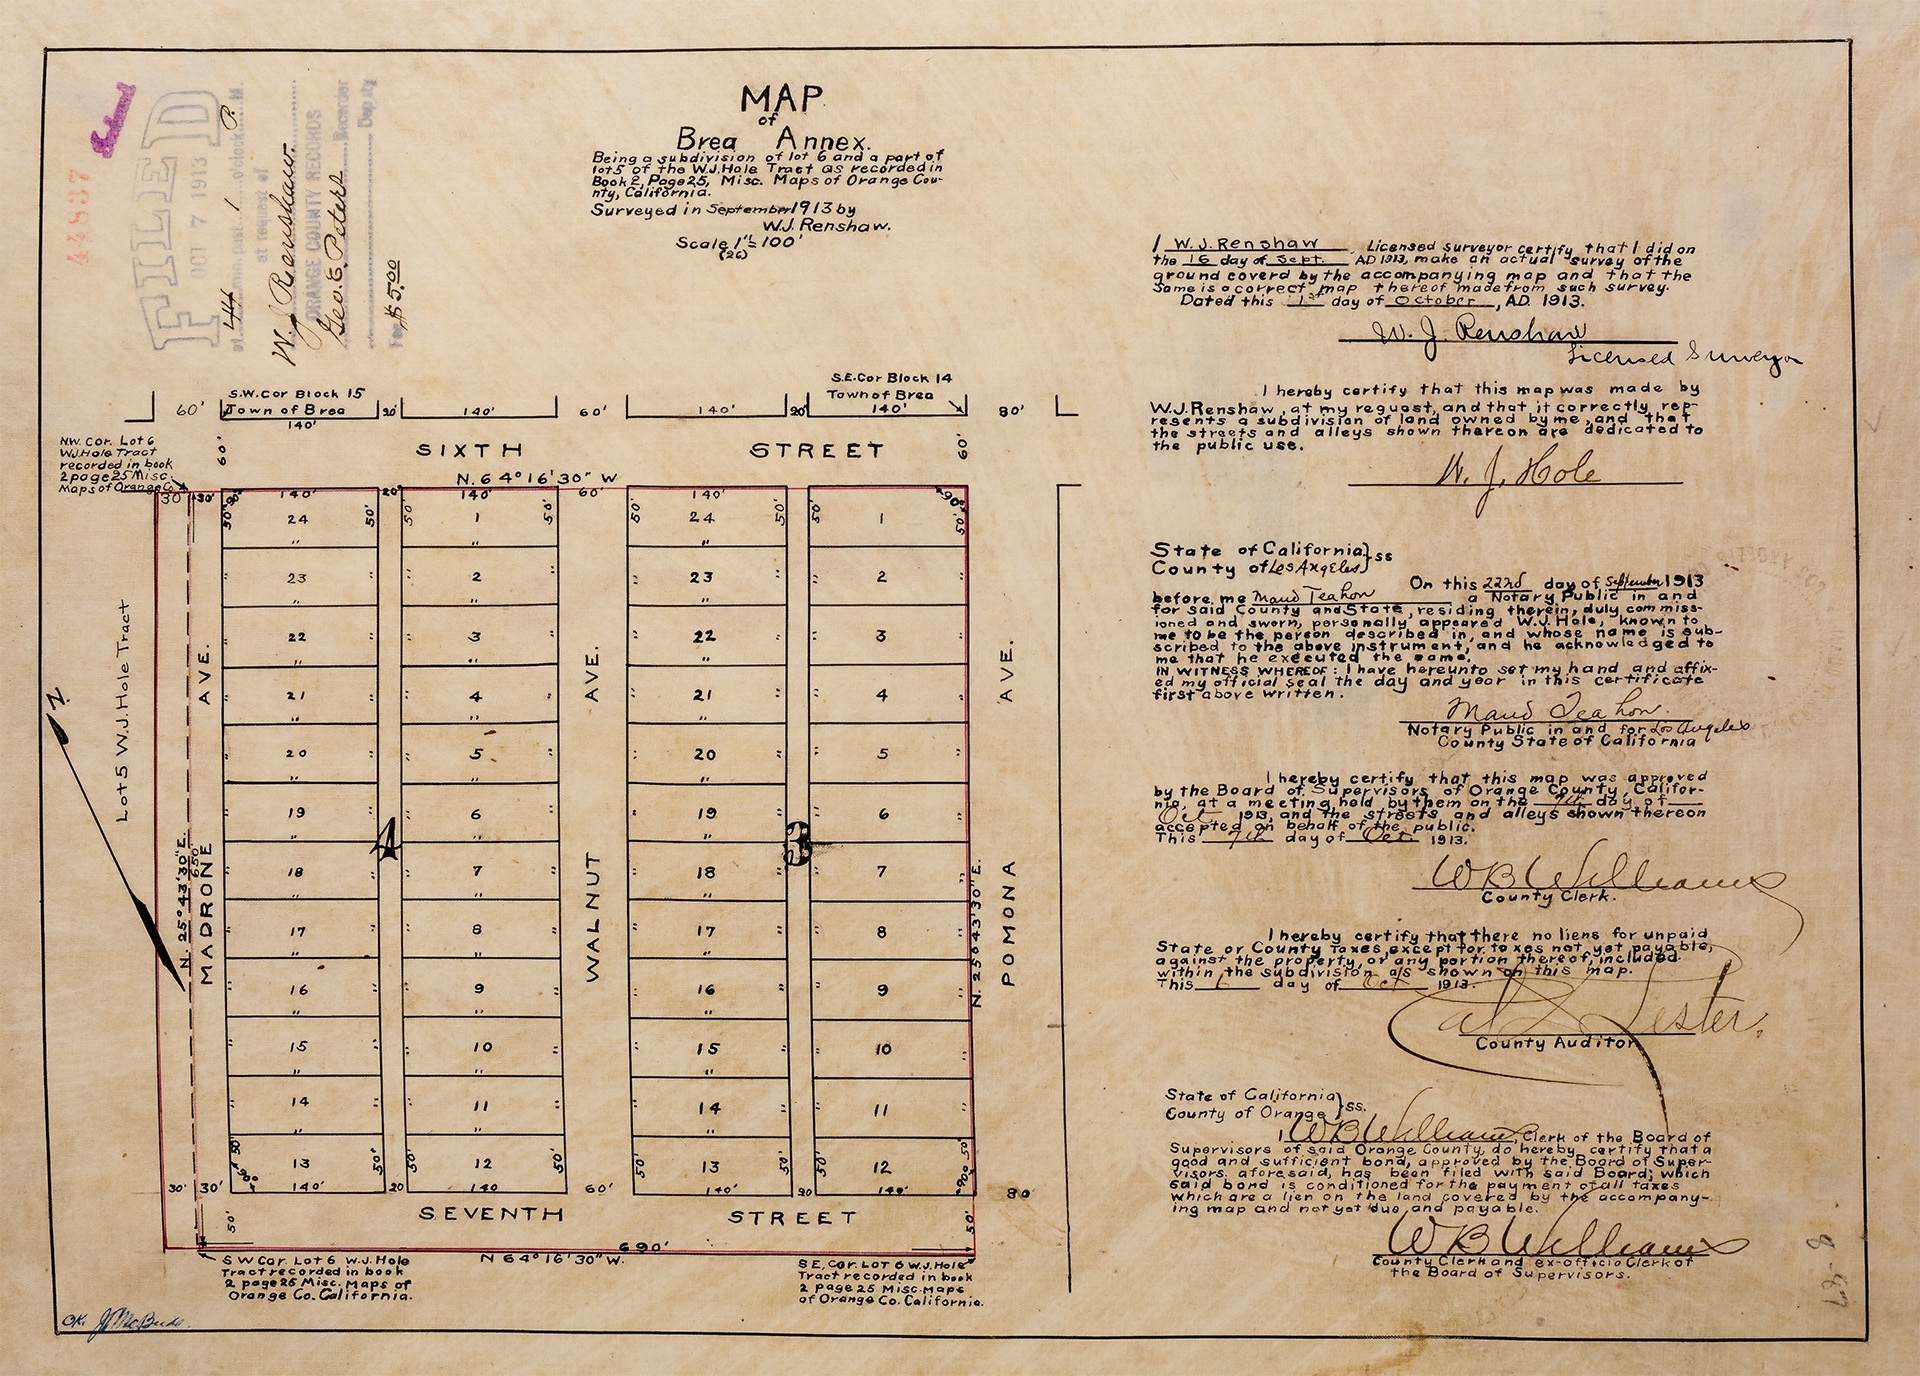 MAP
of
Brea Annex.
Being a subdivision of lot 6 and a part of
lot 5 of the W.J. Hole Tract as recorded in
Book 2, Page 25, Misc. Maps of Orange Cou-
nty, California.
Surveyed in September 1913 by
W.J. Renshaw.
Scale 1"= 100'
(26)
44837
FILED
OCT 7 1913
at 44 min. past 1 o'clock P. M.
at request of
W. J. Renshaw.
ORANGE COUNTY RECORDS
Geo. E. Peters Recorder
Deputy
Fee $5.00
S.W. Cor Block 15
Town of Brea
S.E. Cor Block 14
Town of Brea
60' 20' 140' 60' 140' 20' 140' 80'
140'
60' SIXTH STREET 60'
N. 64° 16' 30" W
NW. Cor. Lot 6
W.J. Hole Tract
recorded in book
2 page 25 Misc.
Maps of Orange Co.
30' 30' 140' 20' 140' 60' 140' 90°
50' 50' 50' 50' 50' 50' 50' 50'
24 1 24 1
23 2 23 2
22 3 22 3
21 4 21 4
20 5 20 5
19 6 19 6
18 7 18 7
17 8 17 8
16 9 16 9
15 10 15 10
14 11 14 11
13 12 13 12
4
3
Lot 5 W.J. Hole Tract
N. 25° 43' 30" E.
650'
MADRONE AVE.
WALNUT AVE.
POMONA AVE.
N. 25° 43' 30" E.
50' 50' 50' 50' 50' 50' 50'
30' 30' 140' 20 140 60' 140' 20 140' 80'
50' SEVENTH STREET 50'
690'
N 64° 16' 30" W.
S W Cor. Lot 6 W.J. Hole
Tract recorded in book
2 page 25 Misc. Maps of
Orange Co. California.
S E, Cor. LOT 6 W.J. Hole
Tract recorded in book
2 page 25 Misc. Maps
of Orange Co. California.
OK. J. McBride.
I W. J. Renshaw Licensed surveyor certify that I did on
the 16 day of Sept. AD 1913, make an actual survey of the
ground coverd by the accompanying map and that the
same is a correct map thereof made from such survey.
Dated this 1st day of October, A.D. 1913.
W. J. Renshaw
Licensed Surveyor
I hereby certify that this map was made by
W.J. Renshaw, at my request, and that it correctly rep-
resents a subdivision of land owned by me, and that
the streets and alleys shown thereon are dedicated to
the public use.
W. J. Hole
State of California } ss
County of Los Angeles }
On this 22nd day of September 1913
before me Maud Teahon a Notary Public in and
for said County and State, residing therein, duly commiss-
ioned and sworn, personally appeared W.J. Hole, known to
me to be the person described in, and whose name is sub-
scribed to the above instrument, and he acknowledged to
me that he executed the same.
IN WITNESS WHEREOF: I have hereunto set my hand and affix-
ed my official seal the day and year in this certificate
first above written.
Maud Teahon.
Notary Public in and for Los Angeles
County State of California
I hereby certify that this map was approved
by the Board of Supervisors of Orange County, Califor-
nia, at a meeting held by them on the 7th day of
Oct 1913, and the streets and alleys shown thereon
accepted on behalf of the public.
This 7th day of Oct. 1913.
W B Williams
County Clerk.
I hereby certify that there no liens for unpaid
State or County Taxes, except for taxes not yet payable,
against the property, or any portion thereof, included
within the subdivision as shown on this map.
This day of Oct 1913.
Lester.
County Auditor
State of California } ss.
County of Orange }
I W B Williams, Clerk of the Board of
Supervisors of said Orange County, do hereby certify that a
good and sufficient bond, approved by the Board of Super-
visors, aforesaid, has been filed with said Board; which
said bond is conditioned for the payment of all taxes
which are a lien on the land covered by the accompany-
ing map and not yet due and payable.
W B Williams
County Clerk and ex-officio Clerk of
the Board of Supervisors.